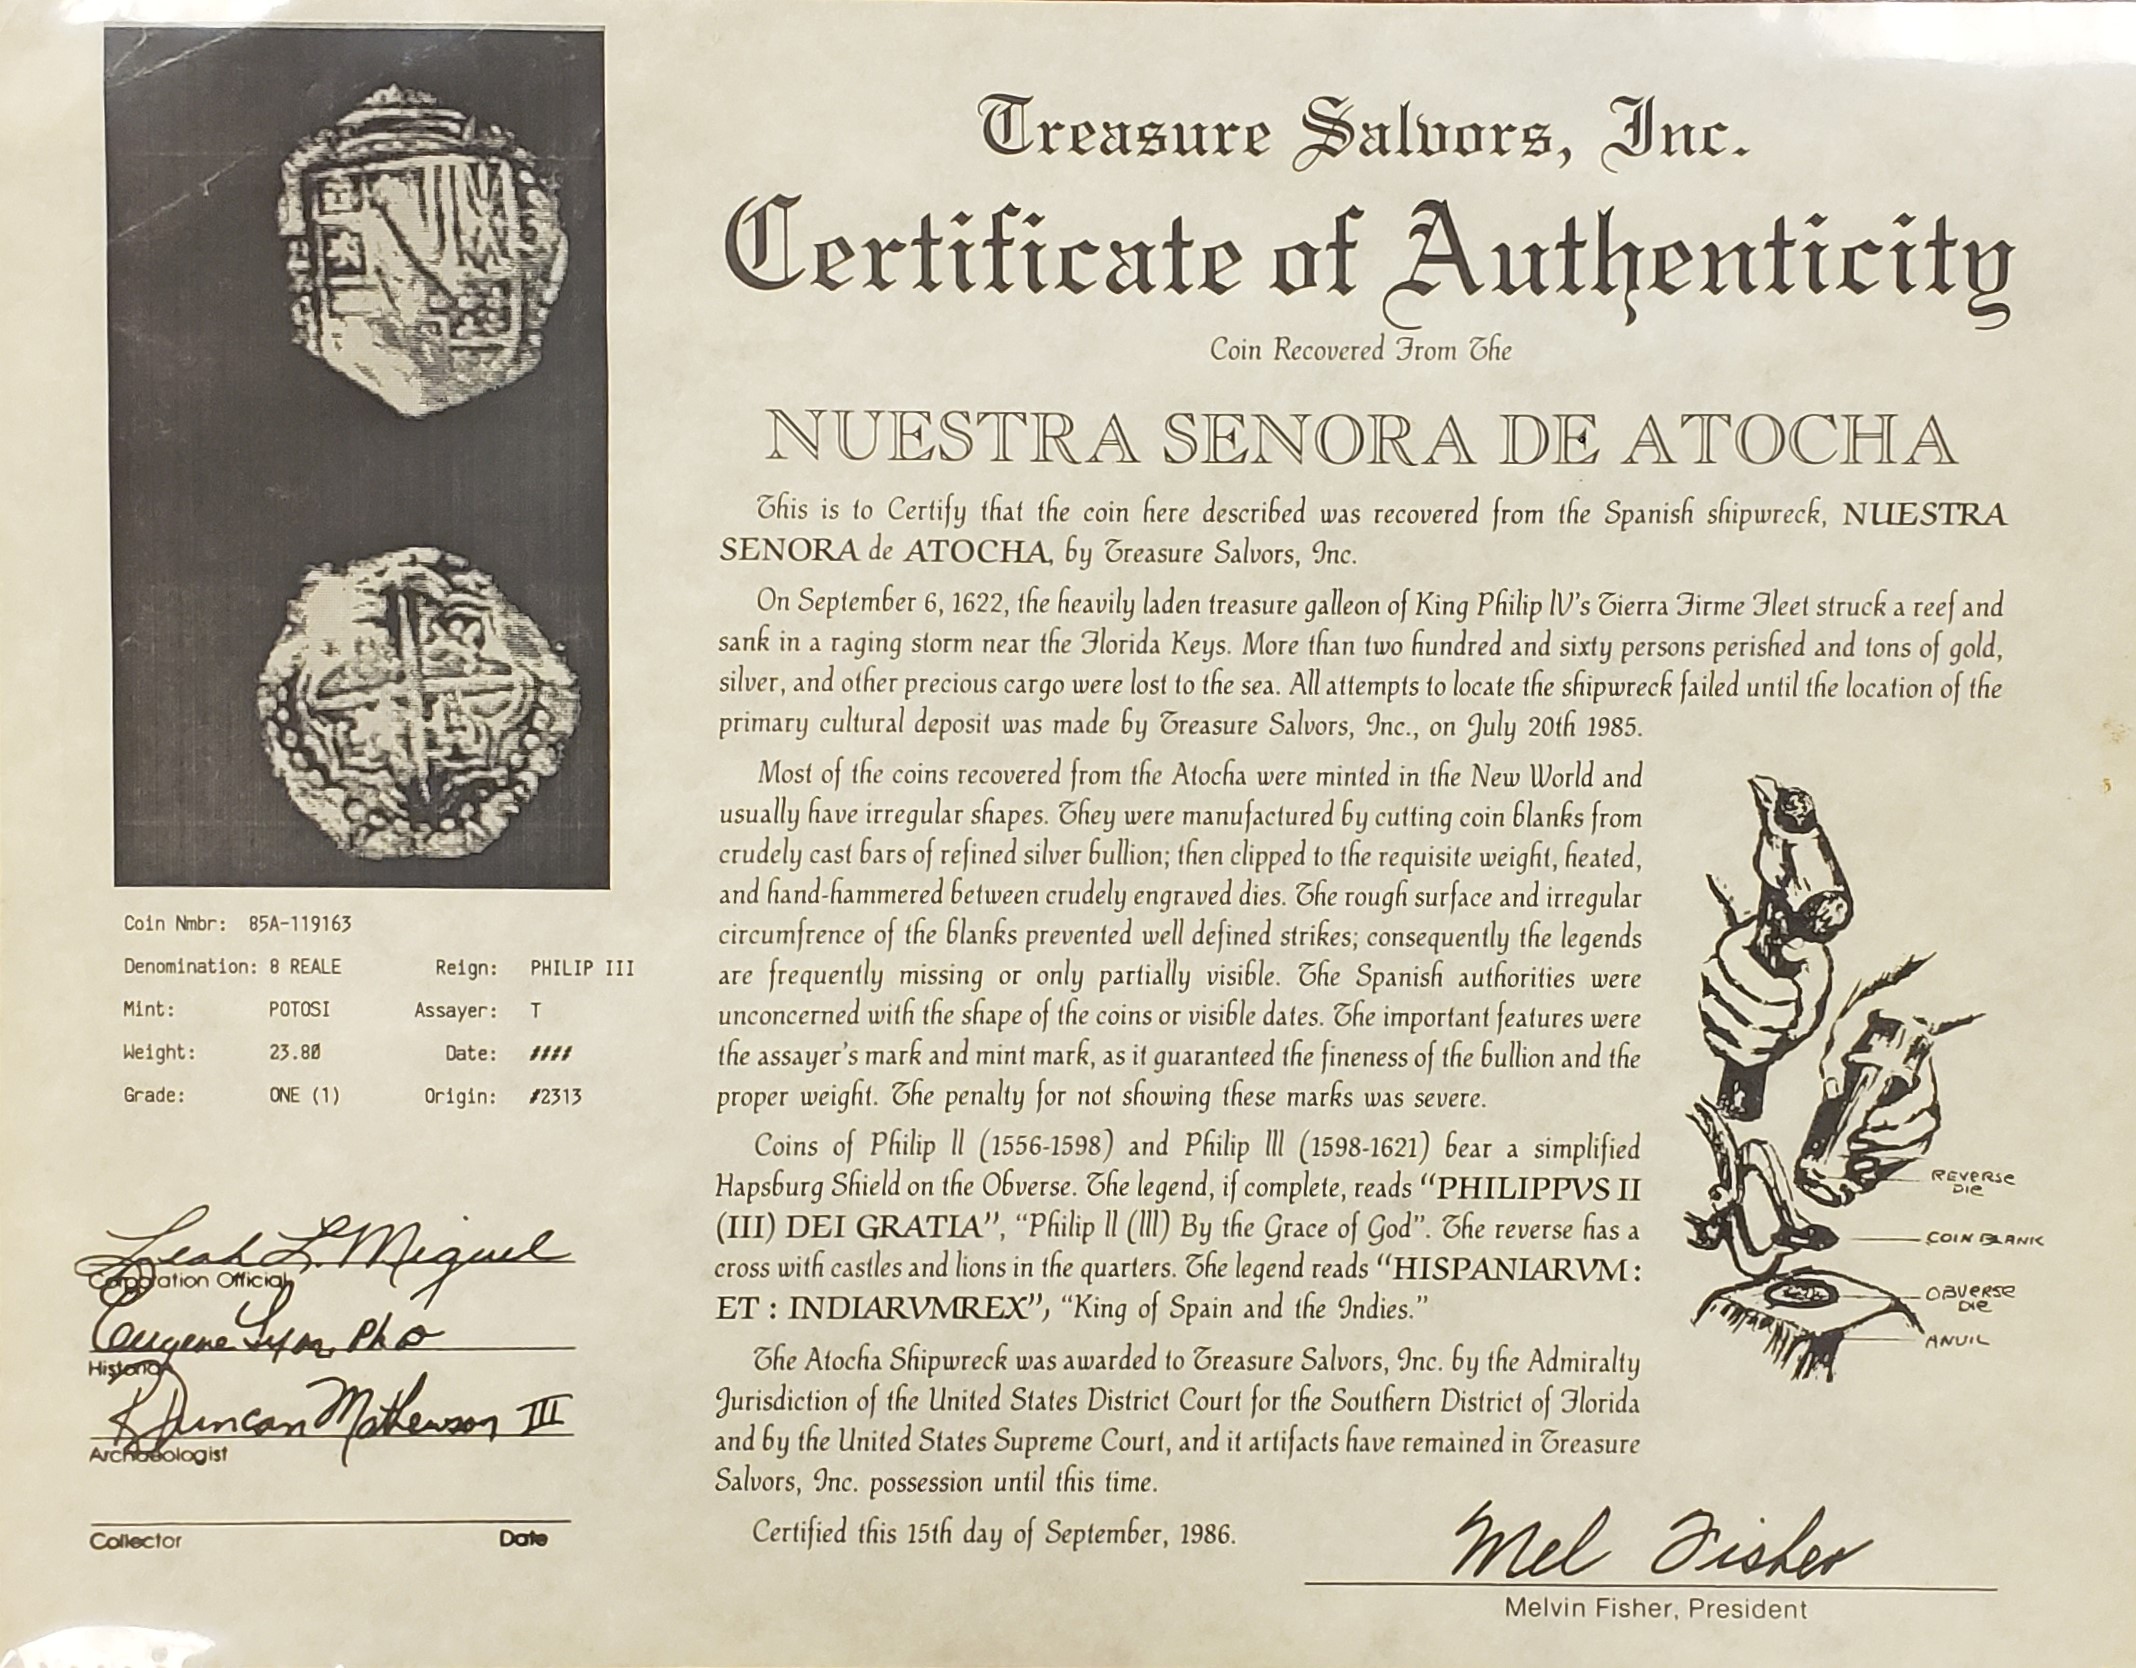 Treasure Salvors, Inc.
Certificate of Authenticity
Coin Recovered From The
NUESTRA SENORA DE ATOCHA
This is to Certify that the coin here described was recovered from the Spanish shipwreck, NUESTRA
SENORA de ATOCHA, by Treasure Salvors, Inc.
On September 6, 1622, the heavily laden treasure galleon of King Philip lV's Tierra Firme Fleet struck a reef and
sank in a raging storm near the Florida Keys. More than two hundred and sixty persons perished and tons of gold,
silver, and other precious cargo were lost to the sea. All attempts to locate the shipwreck failed until the location of the
primary cultural deposit was made by Treasure Salvors, Inc., on July 20th 1985.
Most of the coins recovered from the Atocha were minted in the New World and
usually have irregular shapes. They were manufactured by cutting coin blanks from
crudely cast bars of refined silver bullion; then clipped to the requisite weight, heated,
and hand-hammered between crudely engraved dies. The rough surface and irregular
circumfrence of the blanks prevented well defined strikes; consequently the legends
are frequently missing or only partially visible. The Spanish authorities were
unconcerned with the shape of the coins or visible dates. The important features were
the assayer's mark and mint mark, as it guaranteed the fineness of the bullion and the
proper weight. The penalty for not showing these marks was severe.
Coins of Philip ll (1556-1598) and Philip lll (1598-1621) bear a simplified
Hapsburg Shield on the Obverse. The legend, if complete, reads "PHILIPPVS II
(III) DEI GRATIA", "Philip ll (lll) By the Grace of God". The reverse has a
cross with castles and lions in the quarters. The legend reads "HISPANIARVM :
ET : INDIARVMREX", "King of Spain and the Indies."
The Atocha Shipwreck was awarded to Treasure Salvors, Inc. by the Admiralty
Jurisdiction of the United States District Court for the Southern District of Florida
and by the United States Supreme Court, and it artifacts have remained in Treasure
Salvors, Inc. possession until this time.
Certified this 15th day of September, 1986.
Mel Fisher
Melvin Fisher, President
REVERSE
DIE
COIN BLANK
OBVERSE
DIE
ANVIL
Coin Nmbr: 85A-119163
Denomination: 8 REALE Reign: PHILIP III
Mint: POTOSI Assayer: T
Weight: 23.80 Date: ####
Grade: ONE (1) Origin: #2313
Leah L. Miguel
Corporation Official
Eugene Lyon, PhD
Historian
R Duncan Mathewson III
Archaeologist
Collector Date